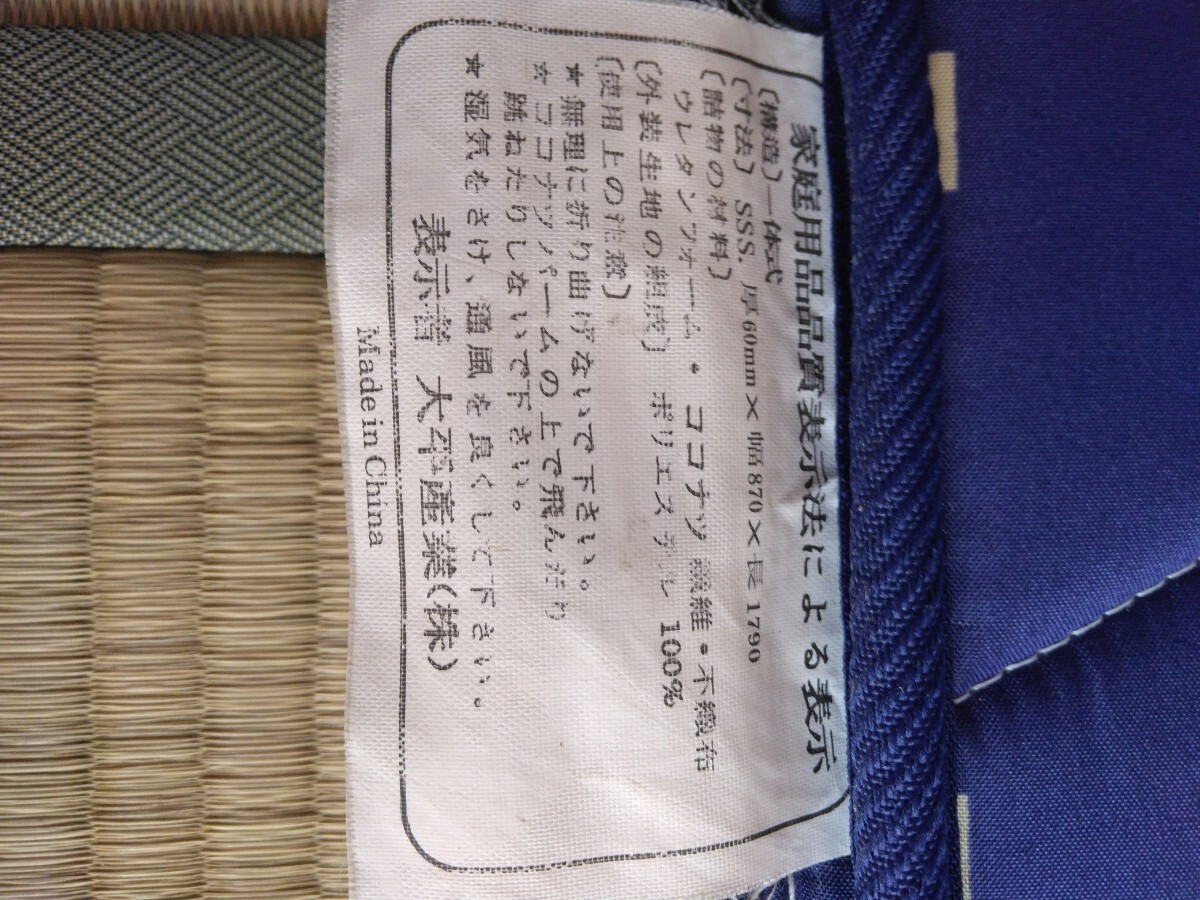 家庭用品品質表示法による表示
〔構造〕一体式
〔寸法〕SSS. 厚60mm×幅870×長1790
〔詰物の材料〕
ウレタンフォーム・ココナツ繊維・不織布
〔外装生地の組成〕 ポリエステル 100%
〔使用上の注意〕
★無理に折り曲げないで下さい。
☆ココナツパームの上で飛んだり
跳ねたりしないで下さい。
★湿気をさけ、通風を良くして下さい。
表示者 大平産業(株)
Made in China